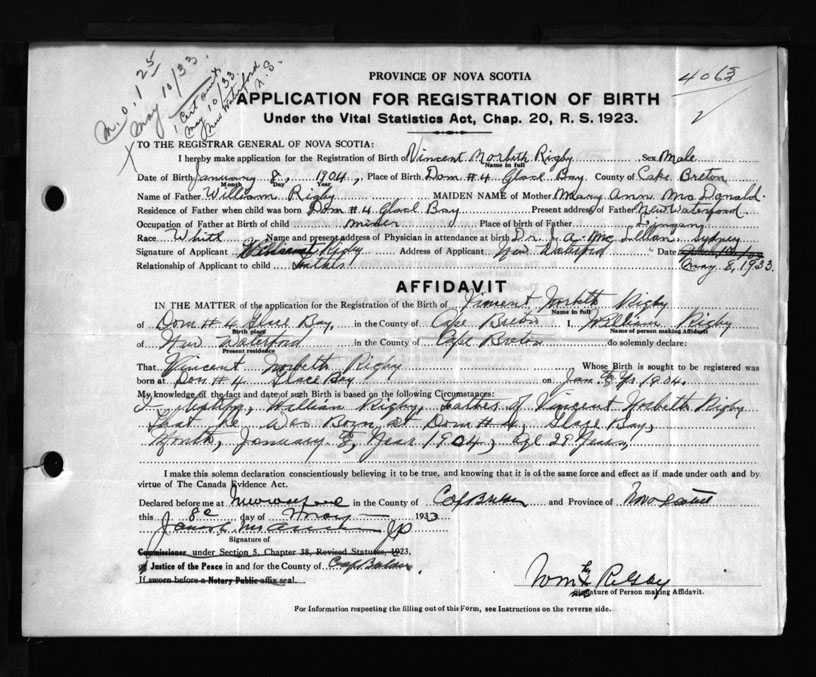 M.O. 1 25
May 10/33
1 Cert
May 10/33
New Waterford
N.S.
4063
PROVINCE OF NOVA SCOTIA
APPLICATION FOR REGISTRATION OF BIRTH
Under the Vital Statistics Act, Chap. 20, R. S. 1923.
TO THE REGISTRAR GENERAL OF NOVA SCOTIA:
I hereby make application for the Registration of Birth of Vincent Norbeth Rigby Sex Male
Name in full
Date of Birth January 8, 1904, Place of Birth Dom #4 Glace Bay County of Cape Breton
Month Day Year
Name of Father William Rigby MAIDEN NAME of Mother Mary Ann McDonald
Residence of Father when child was born Dom #4 Glace Bay Present address of Father New Waterford
Occupation of Father at Birth of child miner Place of birth of Father Lingan
Race White Name and present address of Physician in attendance at birth Dr. J. A. McLellan, Sydney
Signature of Applicant Rigby Address of Applicant New Waterford Date
Relationship of Applicant to child Father May 8, 1933
AFFIDAVIT
IN THE MATTER of the application for the Registration of the Birth of Vincent Norbeth Rigby
Name in full
of Dom #4 Glace Bay, in the County of Cape Breton I, William Rigby
Birth place Name of person making Affidavit
of New Waterford in the County of Cape Breton do solemnly declare:
Present residence
That Vincent Norbeth Rigby Whose Birth is sought to be registered was
born at Dom #4 Glace Bay on Jan 8 1904.
My knowledge of the fact and date of such Birth is based on the following Circumstances:
I, William Rigby, Father of Vincent Norbeth Rigby
that he was Born at Dom #4, Glace Bay,
Month, January 8, Year 1904, age 29 Years,
I make this solemn declaration conscientiously believing it to be true, and knowing that it is of the same force and effect as if made under oath and by
virtue of The Canada Evidence Act.
Declared before me at in the County of Cape Breton and Province of Nova Scotia
this 8 day of May 1933
J P
Signature of
Commissioner under Section 5, Chapter 38, Revised Statutes, 1923,
of Justice of the Peace in and for the County of Cape Breton.
If sworn before a Notary Public affix seal.
Wm Rigby
Signature of Person making Affidavit.
For Information respecting the filling out of this Form, see Instructions on the reverse side.